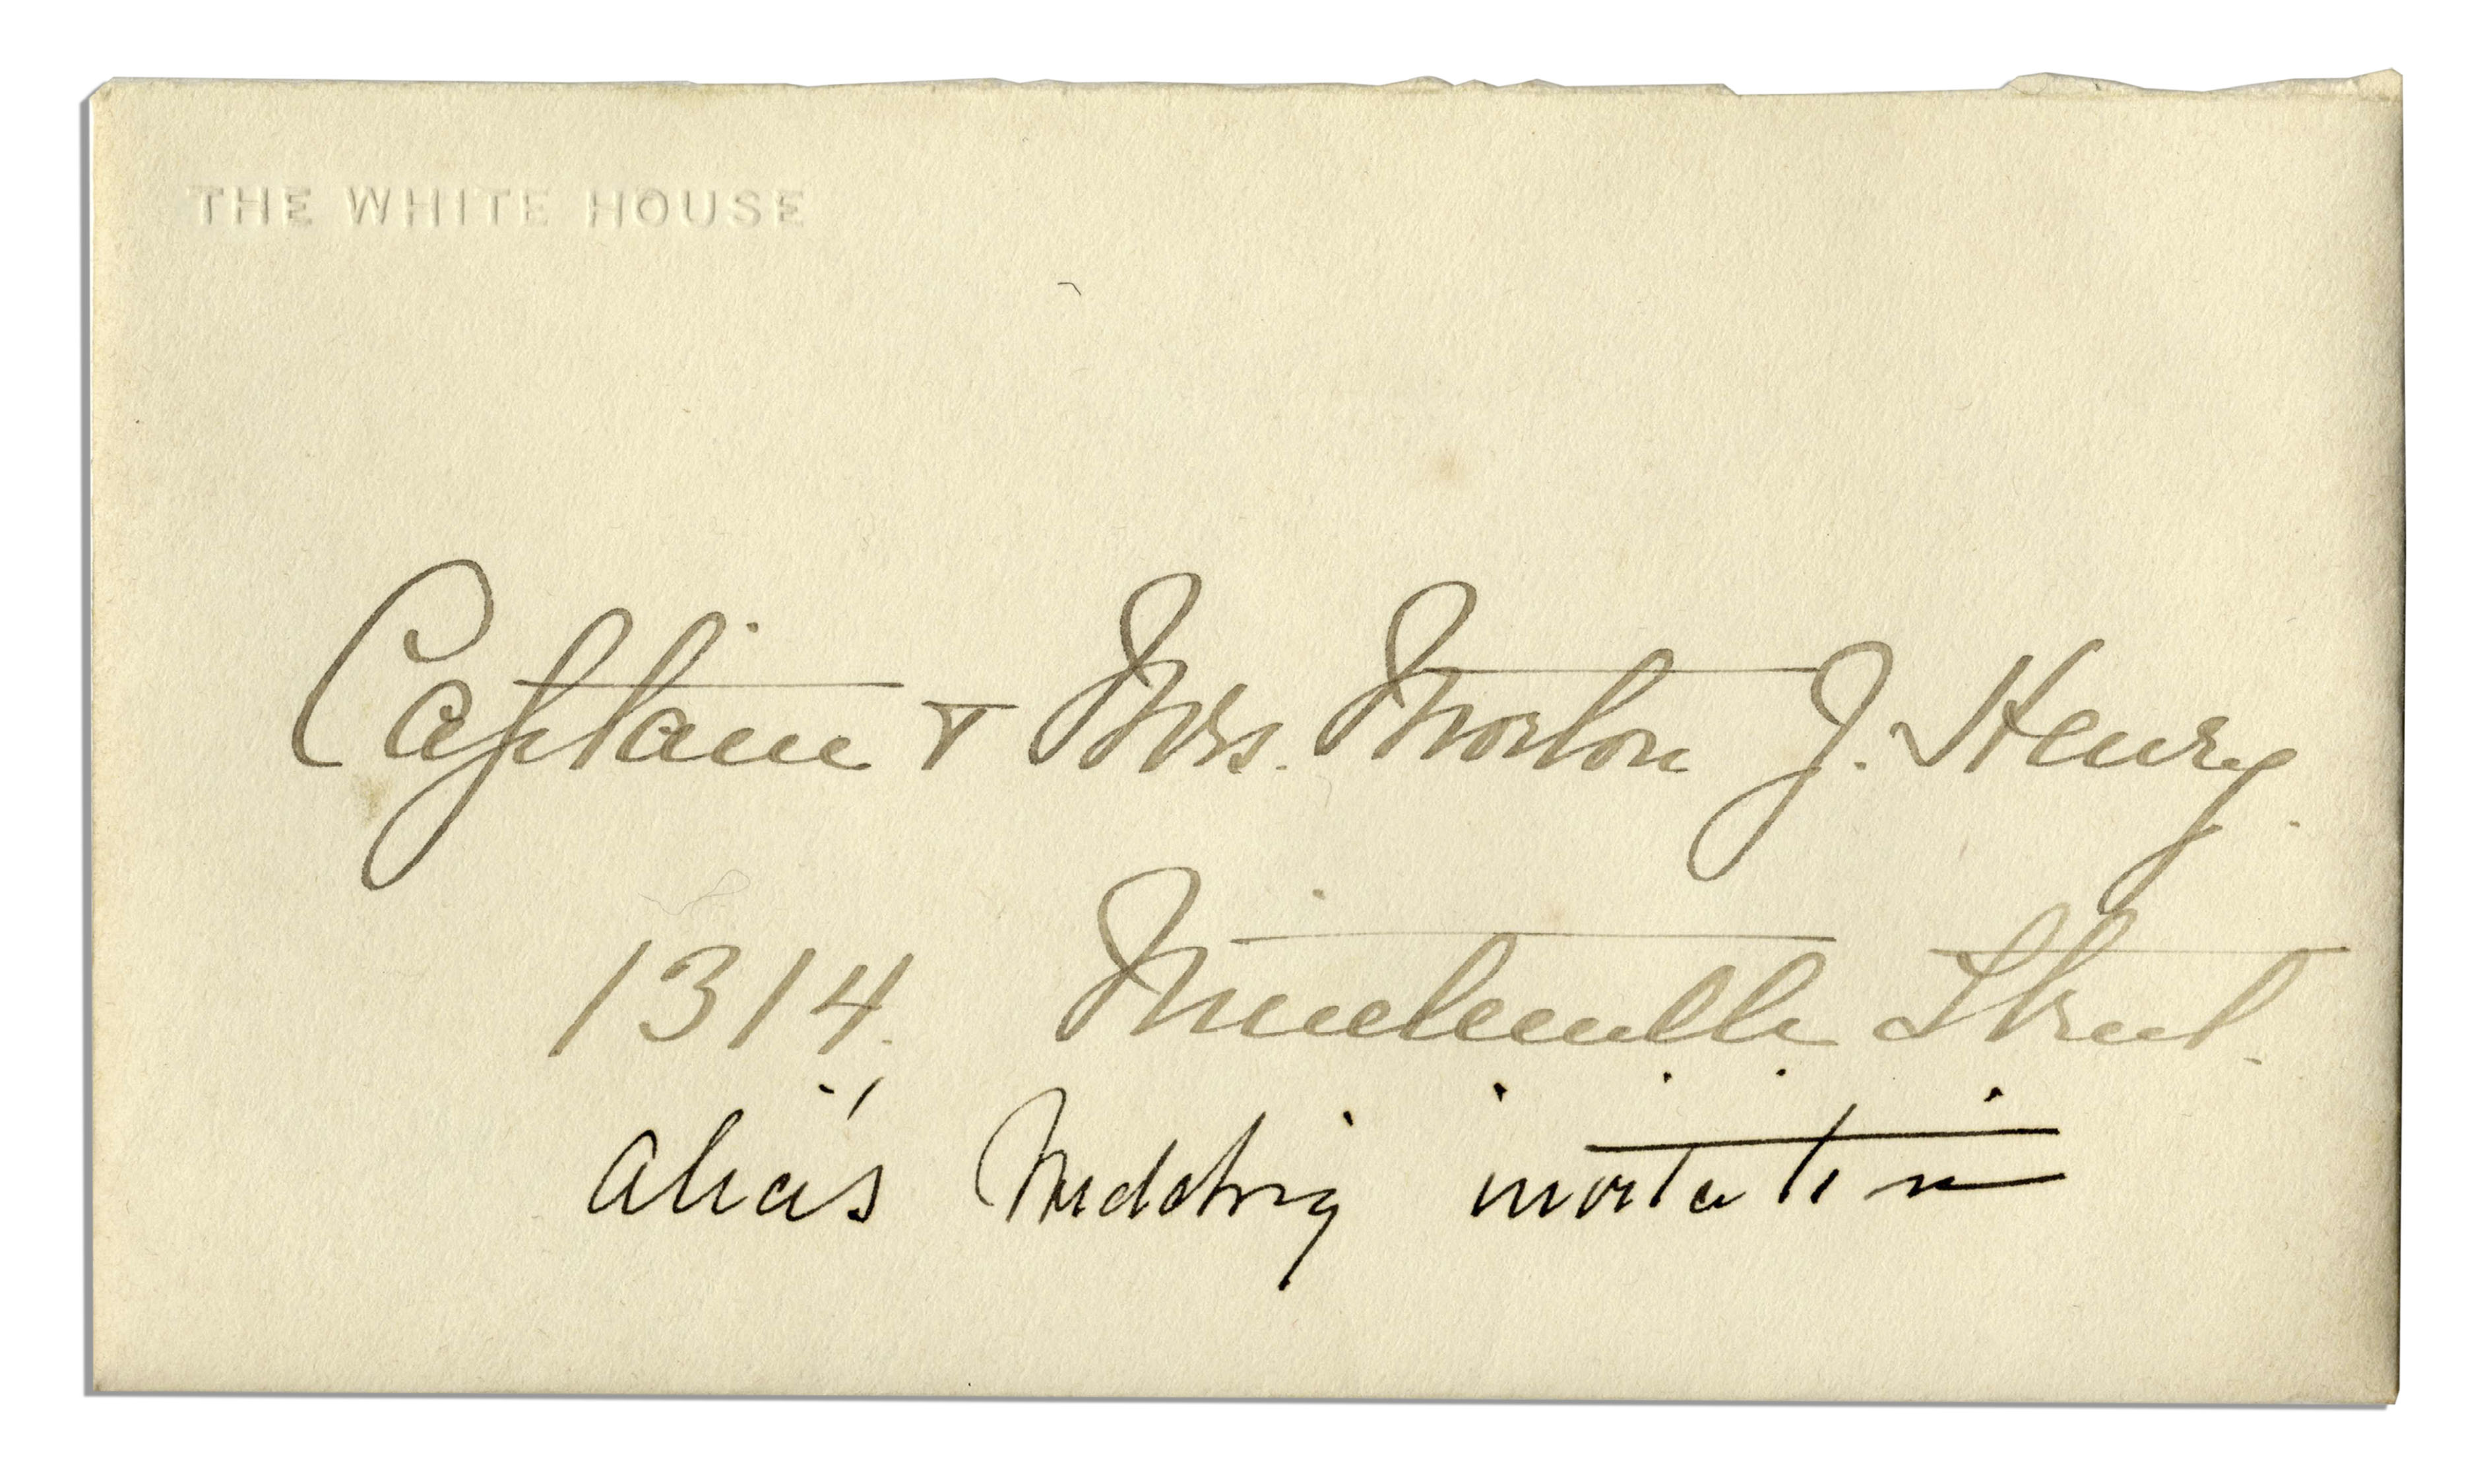 THE WHITE HOUSE
Captain & Mrs. Morton J. Henry.
1314. Nineteenth Street.
Alice's Wedding invitation